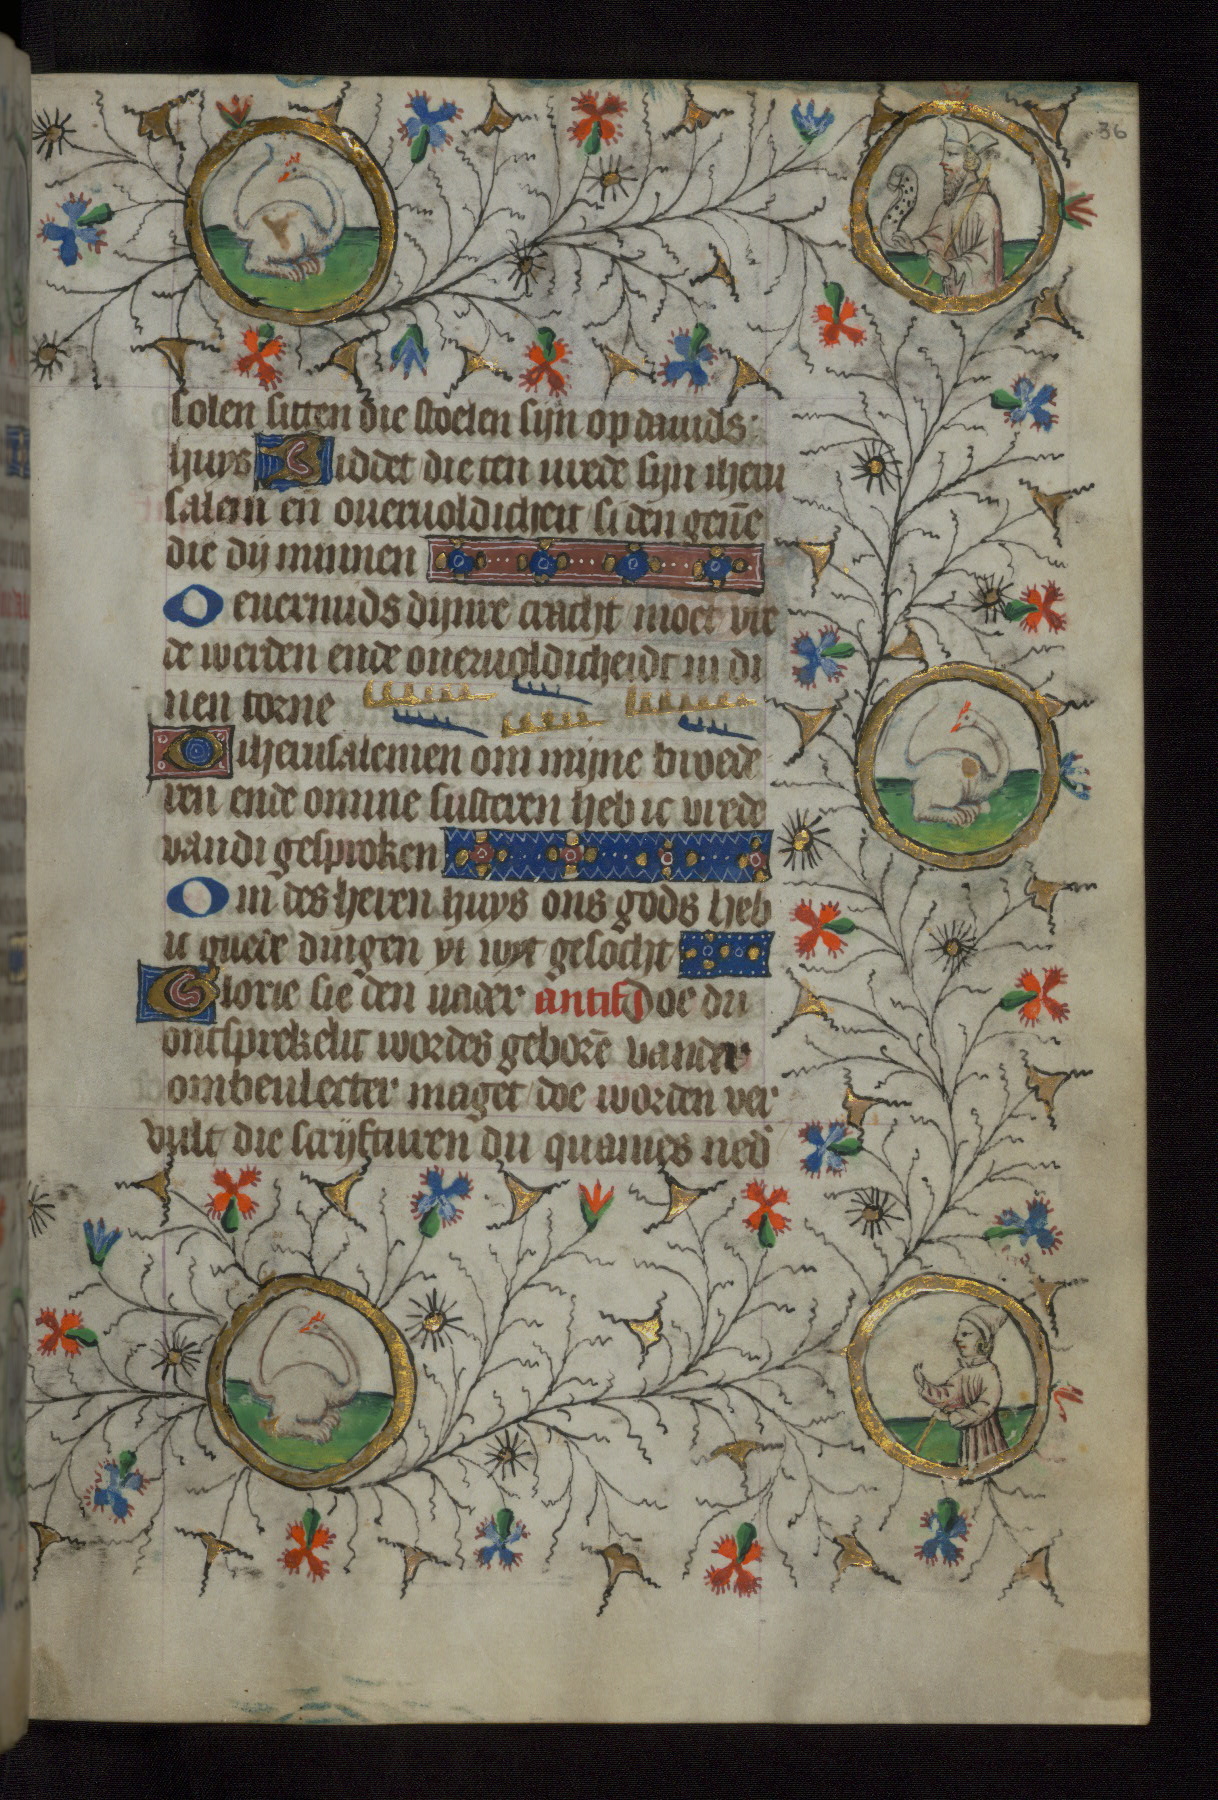 36
solen sitten die stoelen sijn op dauids
huys Biddet die ten vrede sijn iheru
salem en̄ oueruoldicheit si den geūe
die dij minnen
Ouermids dijnre cracht moet vre
de werden ende oueruoldicheidt in di
nen torne
Iherusalemen om mijne bruede
ren ende om mine susteren heb ic vrede
van di gesproken
Om des heren huys ons gods heb
ic guede dingen vt wyt gesocht
Glorie sie den vader antif Doe du
ontsprekelic wordes geborē vander
ombeulecter maget doe worden ver
vult die scrijfturen du quames ned